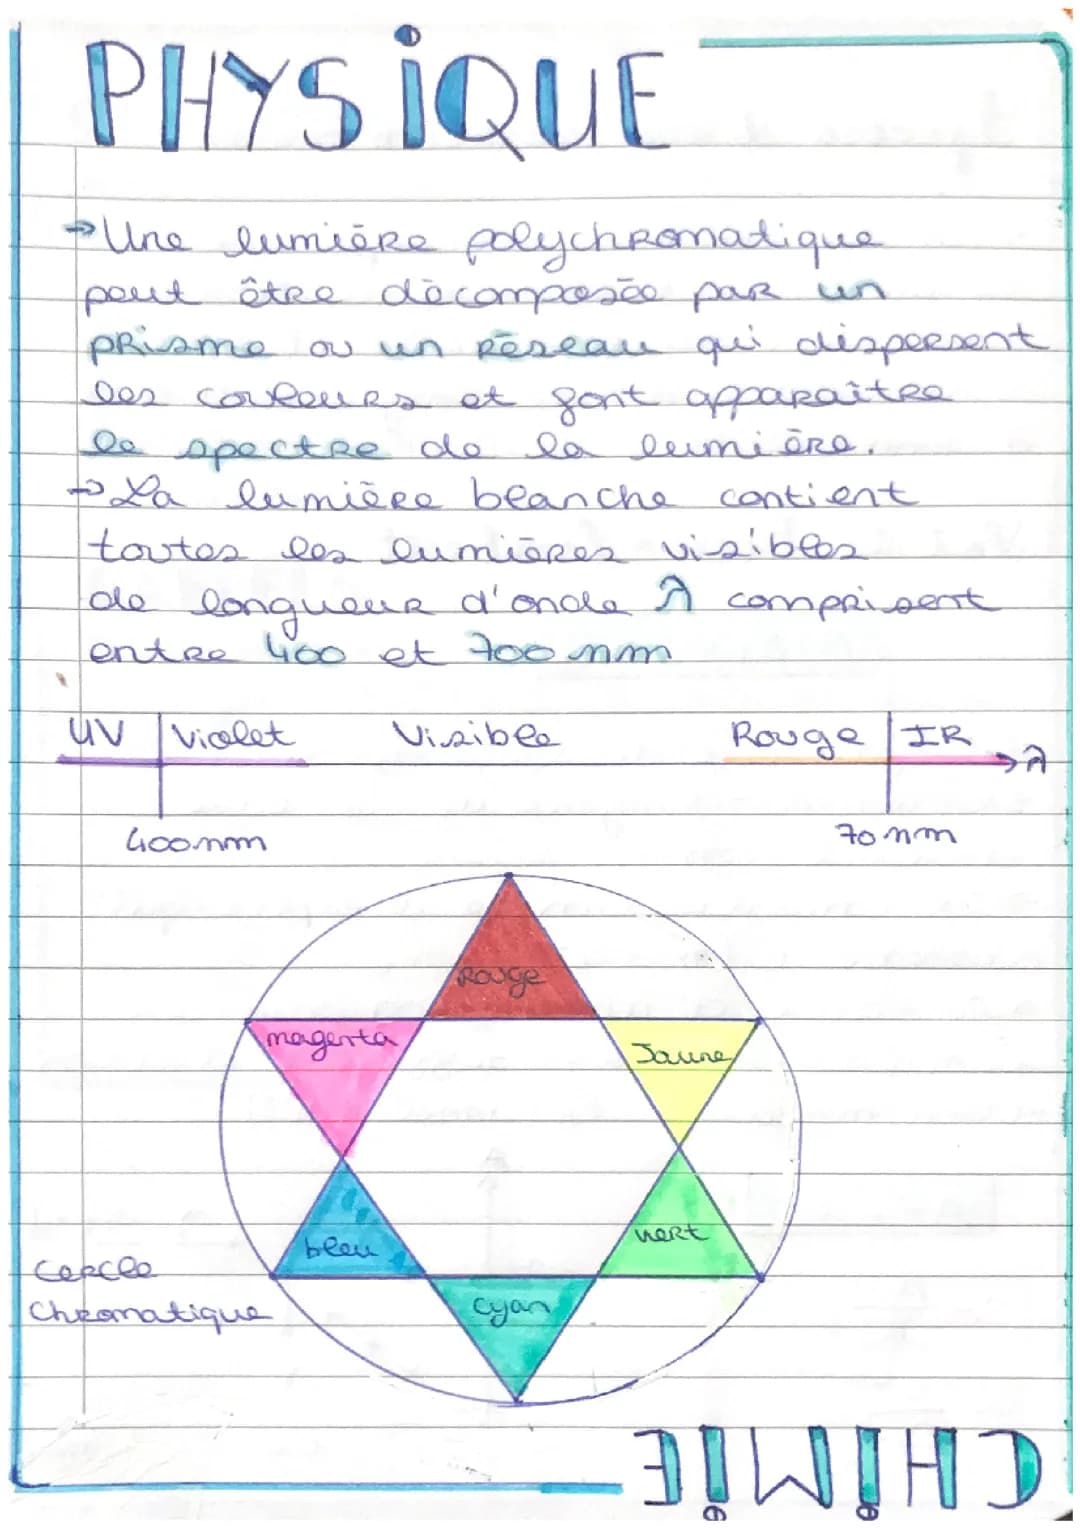 PHYSIQUE
→ Une lumière polychromatique
peut être décomposée par un
prisme ou un réseau qui dispersent
les couleurs et font apparaître
le spectre de la lumière.
→ La lumière blanche contient
toutes les lumières visibles
de longueur d'onde λ comprisent
entre 400 et 700 nm
UV Violet Visible Rouge IR λ
400 nm 70 nm
Rouge
magenta Jaune
bleu vert
Cyan
Cercle
Chromatique
CHIMIE